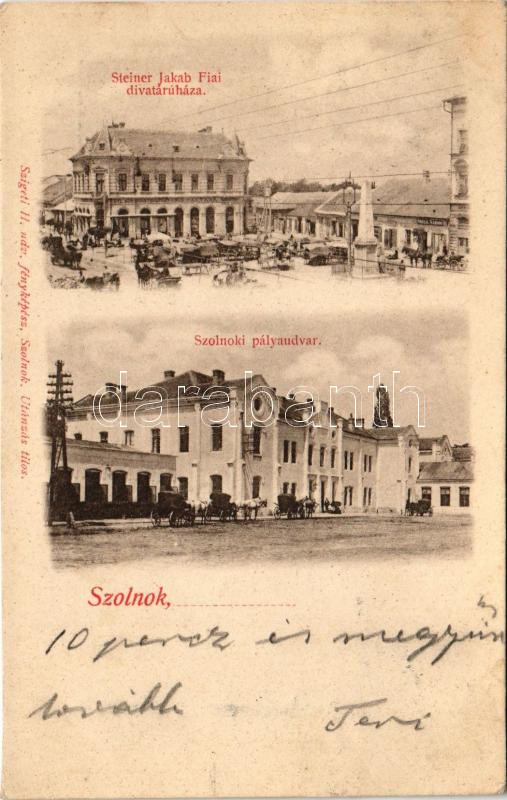 Steiner Jakab Fiai
divatárúháza.
Szigeti H. udv. fényképész, Szolnok. Utánzás tilos.
Szolnoki pályaudvar.
darabanth
Szolnok,
10 percz és megyün
tovább Teri